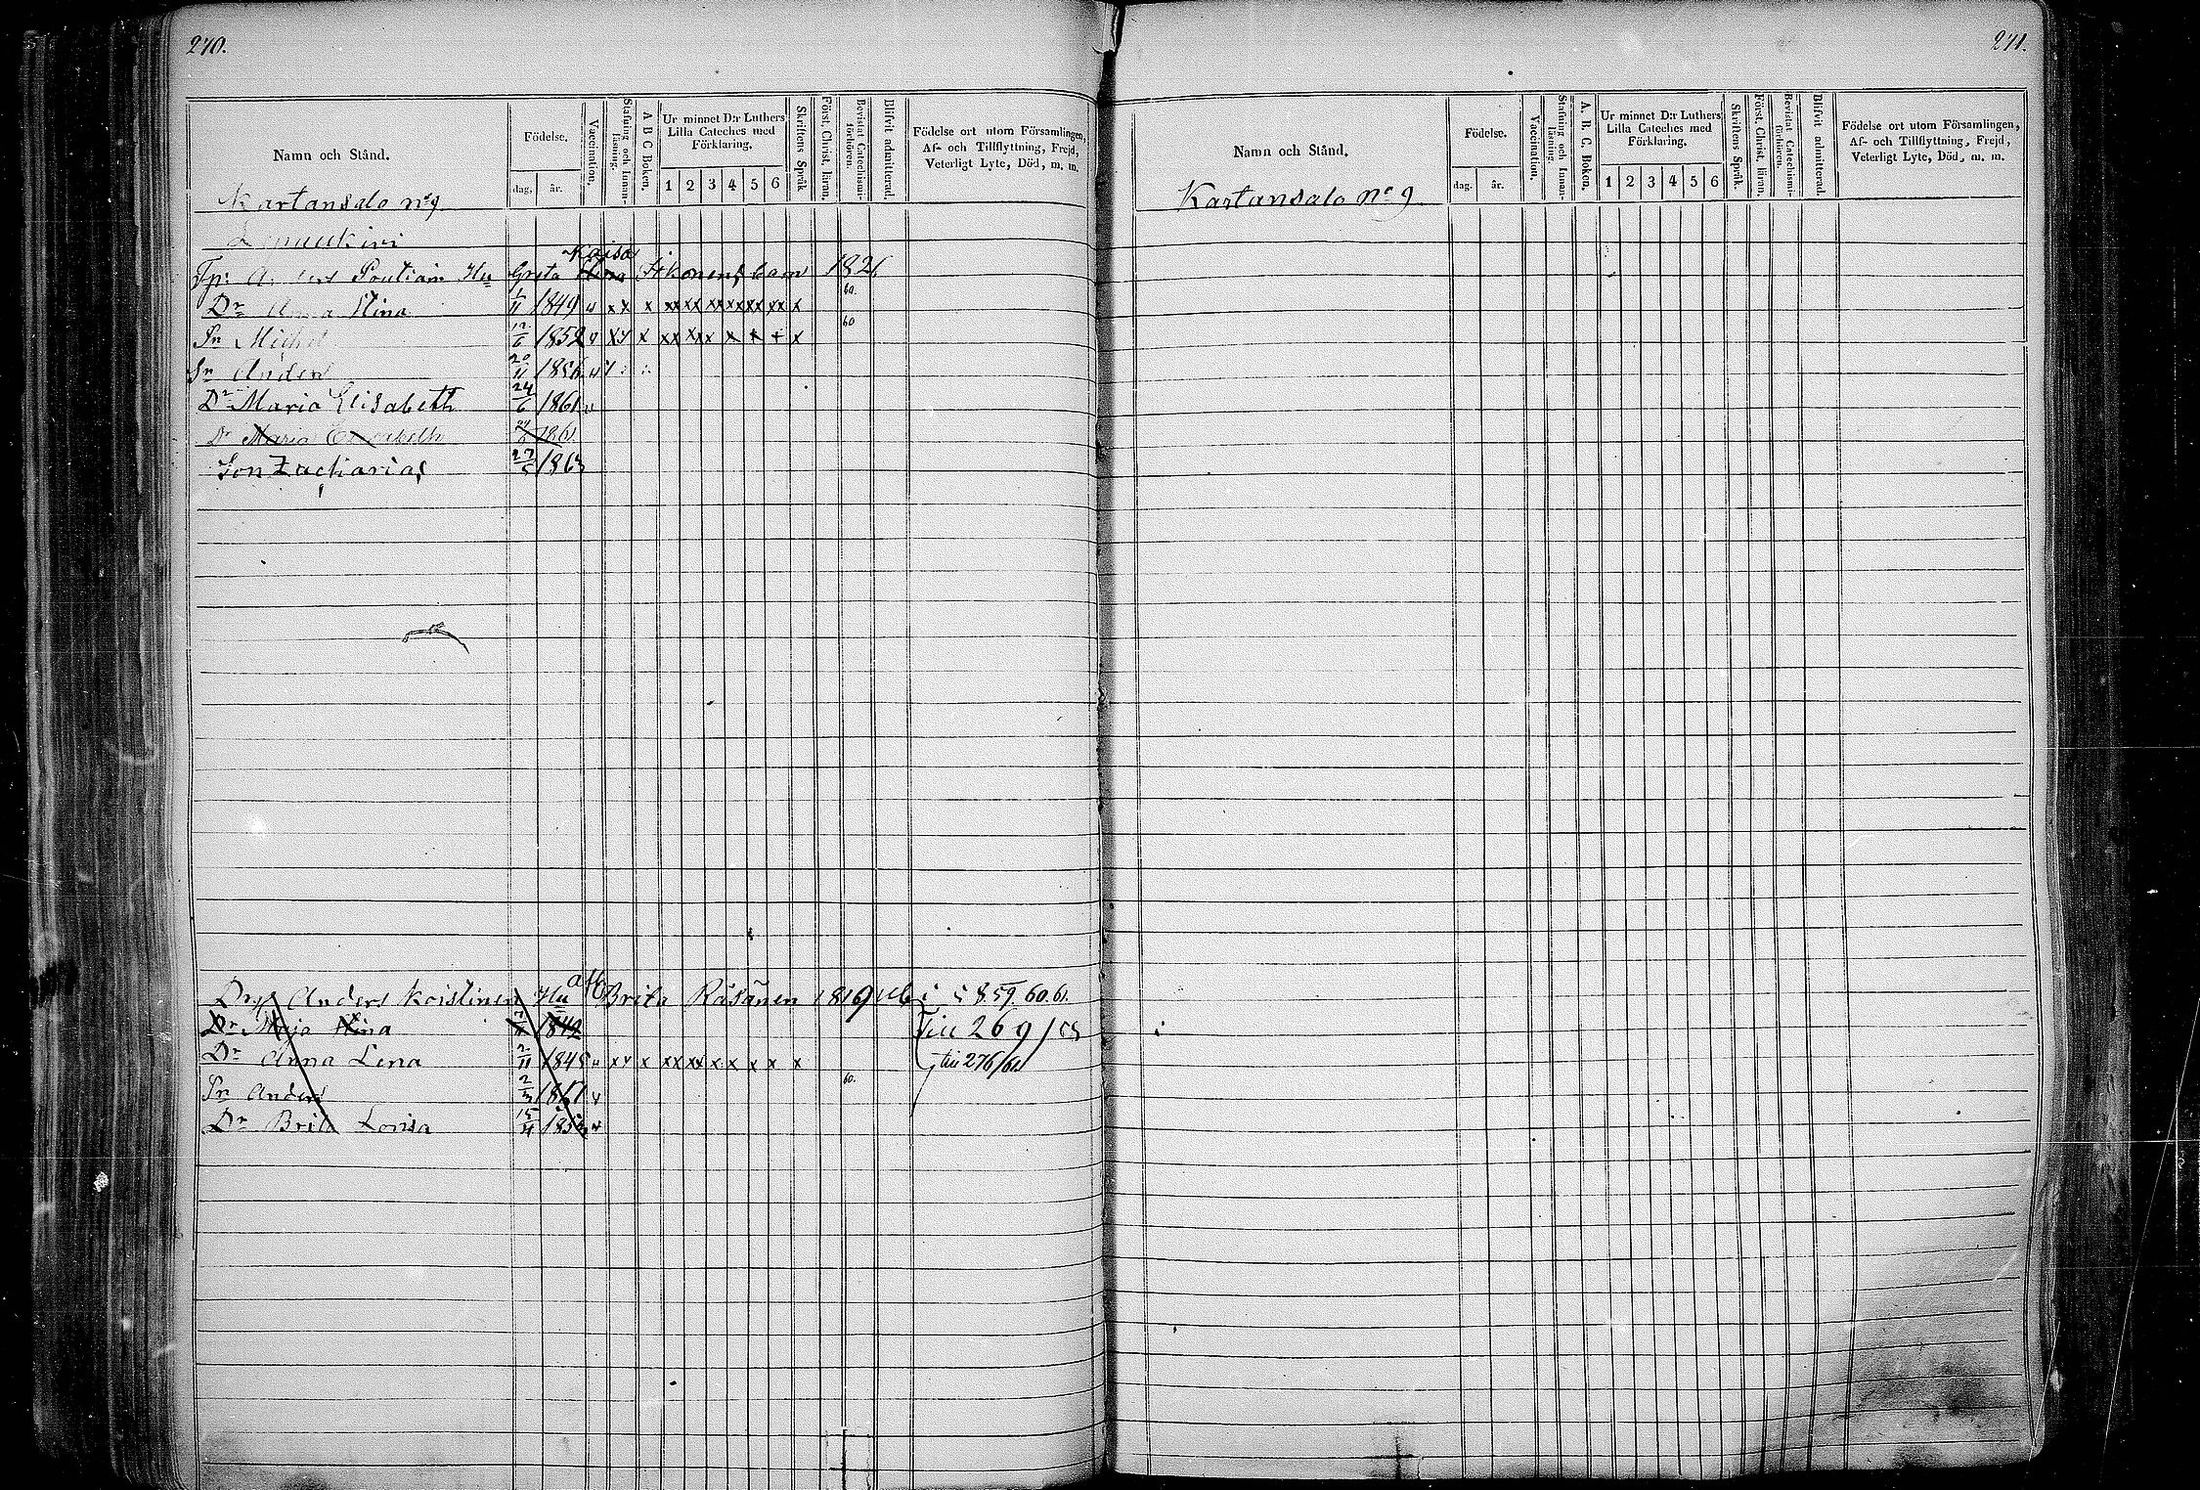 270.
Namn och Stånd.
Födelse.
dag. år.
Vaccination.
Stafning och Innan-läsning.
A B C Boken.
Ur minnet D:r Luthers
Lilla Cateches med
Förklaring.
1 2 3 4 5 6
Skriftens Språk
Först. Christ. läran.
Bevistat Catechismi-förhören.
Blifvit admitterad.
Födelse ort utom Församlingen,
Af- och Tillflyttning, Frejd,
Veterligt Lyte, Död, m. m.
Kartansalo No 9
Kaisa
Anders Poutiain Hu Greta Stina 1821
Dr Anna Stina 1/11 1849 v xx x xx xx xx xx xx xx x
60.
Sn Michel 12/6 1852 v xy x xx xxx x x x + x
60
Sn Anders 20/11 1856 v
Dr Maria Elisabeth 24/6 1861 v
Dr Maria Elisabeth 1861
Son Zacharias 27/5 1863
Anders Koistinen Hu Brita Räsänen 1819 i 59. 60. 61.
Dr Maja Stina 1842 Till 269/
Dr Anna Lena 2/11 1845 v xy x xx xx x x x x x till 276/61
60.
Sn Anders 2/3 1851 v
Dr Brita Lovisa 15/4 185 v
271.
Namn och Stånd.
Födelse.
dag. år.
Vaccination.
Stafning och Innan-läsning.
A. B. C. Boken.
Ur minnet D:r Luthers
Lilla Cateches med
Förklaring.
1 2 3 4 5 6
Skriftens Språk.
Först. Christ. läran.
Bevistat Catechismi-förhören.
Blifvit admitterad.
Födelse ort utom Församlingen,
Af- och Tillflyttning, Frejd,
Veterligt Lyte, Död, m. m.
Kartansalo No 9